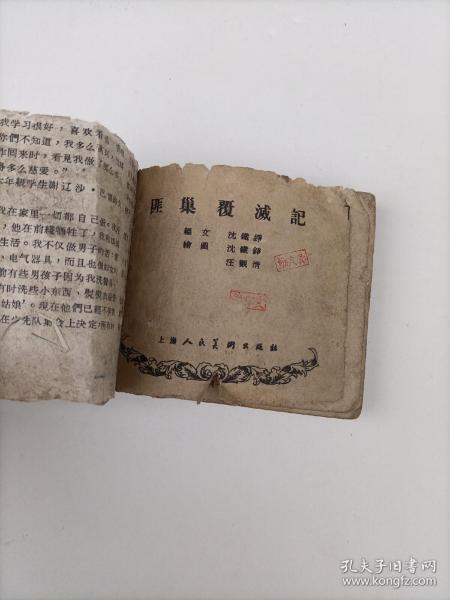 我学习很好，喜欢看
你們不知道，我多么
作回来时，看見我做
多么慈爱。”
年級学生謝辽沙·巴
我在家里一切都自己做。
他在前綫牺牲了，
生活。我不仅做男子的
电气器具，而且也
前有些男孩子因为我洗
有时洗些小东西，
姑娘’。現在他們已經不
在少先队集会上决定
匪巢覆滅記
編文 沈鐵錚
繪圖 沈鐵錚
汪觀清
上海人民美術出版社
孔夫子旧书网
www.kongfz.com